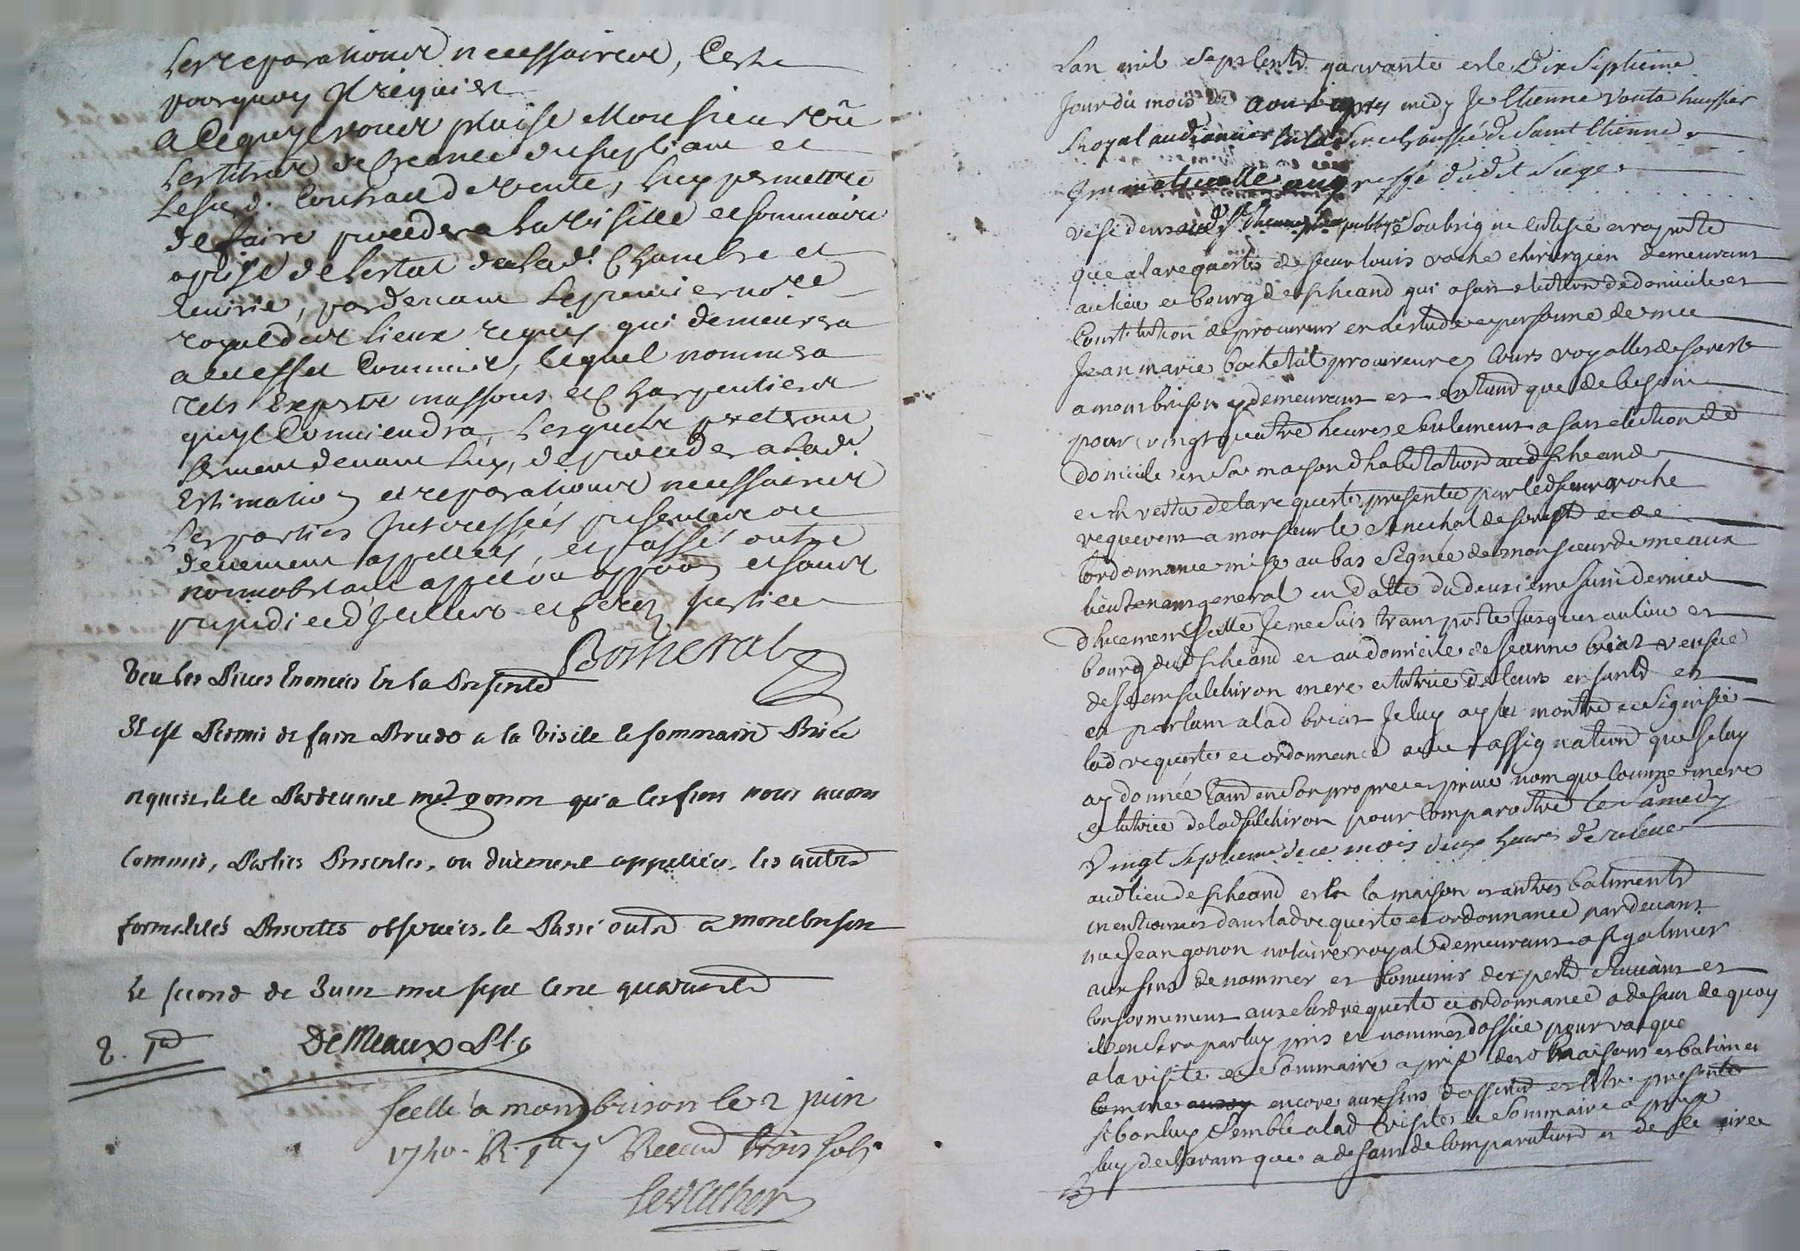 les reparations necessaires, C'est
pourquoy Il requiert
A Ce quil vous plaise Monsieur vû
les titres de Creance du supliant et
le susd. Contract de vente, luy permettre
de faire proceder a la visitte et sommaire
aprise de l'estat de lad. Chambre et
Ecurie, pardevant le premier no.re
royal des lieux requis qui demeurera
a cet effet Commis, lequel nommera
tels Experts massons et Charpentiers
quil Conviendra, lesquels pretront
serment devant luy, de proceder a lad.
Estimation et reparations necessaires
les parties Interessées presentes ou
duement appellées, et passé outre
nonnobstant appel ou oppõn et sans
prejudice d'Iceux et ferez justice
Bochetal
Veu les Pieces Enoncées En la Presente
Il est Permis de faire Proceder a la Visite et sommaire Prisée
requise, et le Pardevant me. gonon qu'a ces fins nous avons
Commis, Parties Presentes, ou duement appellées, les autres
formalités Prescrites observées, et Passé outre a monbrison
le second de Juin mil sept cent quarante
De Meaux Lt. g
scellé a montbrison le 2 juin
1740. R. Receu trois sols
levacher
Lan mil sept cents quarante et le dix septieme
Jour du mois de aoust apres midy Je Etienne vouta huissier
Royal audiancier en la senechaussée de Saint Etienne
Immatriculle au greffe dudit siege
residant aud. St Etienne soubsigné certifie et raporte
que a la requeste de sieur louis roche chirurgien demeurant
au lieu et bourg de scheand qui a fait election de domicile et
Constitution de procureur en l'estude et personne de me
Jean marie bochetal procureur es Cours royalles de forest
a montbrison y demeurant et en tant que de besoin
pour vingt quatre heures seulement a fait election de
domicile en sa maison d'habitation aud scheand
et en vertu de la requeste presentée par led sieur roche
requerent a monsieur le senechal de forest et de
l'ordonnance mise au bas signée de monsieur de meaux
lieutenant general en datte du deux ieme juin dernier
duement scellé Je me suis transporté jusques au lieu et
bourg dud scheand et au domicile de jeanne briat veufve
de sieur fulchiron mere et tutrice de leurs enfants et
et parlant a lad briat Je luy ay montré et signifié
lad requeste et ordonnance avec assignation que je luy
ay donnée tant en son propre et privé nom que comme mere
et tutrice de lad fulchiron pour comparoitre le samedy
Vingt septieme de ce mois deux heures de relevée
aud lieu de scheand et en la maison et autres batiments
mentionnes dans lad requeste et ordonnance pardevant
me jean gonon notaire royal demeurant a st galmier
aux fins de nommer et convenir d'experts et
conformement aux susd requeste et ordonnance a defaut de quoy
il en sera par luy pris et nommes d'office pour vacquer
a la visite et sommaire aprise des maisons et batiments
comme encore aux fins d'assister et etre presente
si bon luy semble a lad visite et sommaire aprise
luy declarant que a defaut de comparution